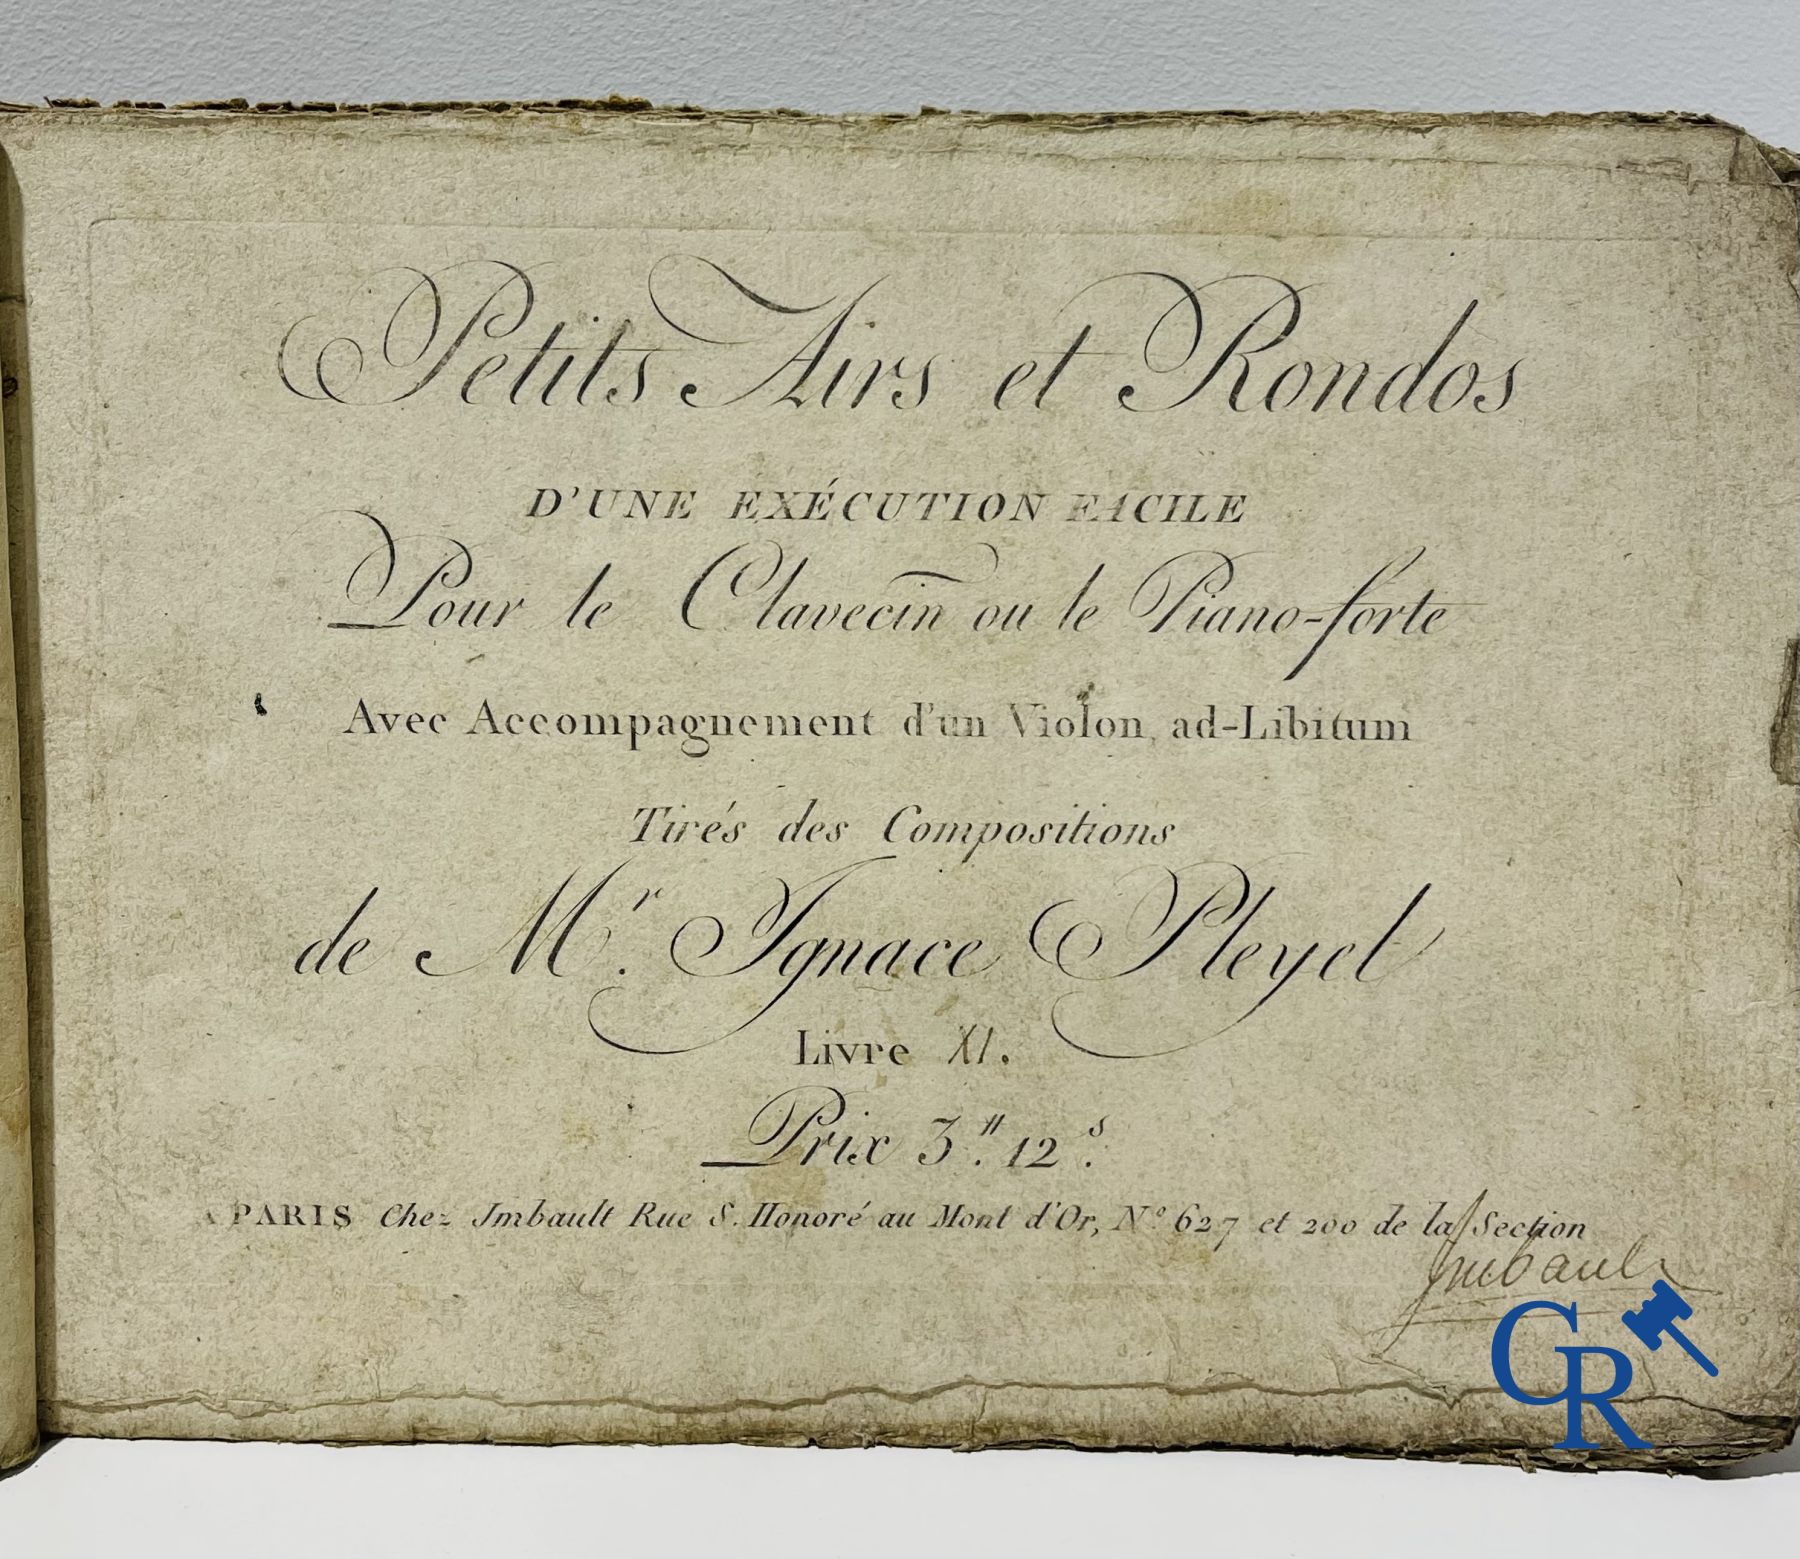 Petits Airs et Rondos
D'UNE EXÉCUTION FACILE
Pour le Clavecin ou le Piano-forte
Avec Accompagnement d'un Violon, ad-Libitum
Tirés des Compositions
de M.r Ignace Pleyel
Livre XI.
Prix 3.tt 12.s
A PARIS Chez Imbault Rue S. Honoré au Mont d'Or, N.o 627 et 200 de la Section
Imbault
CR